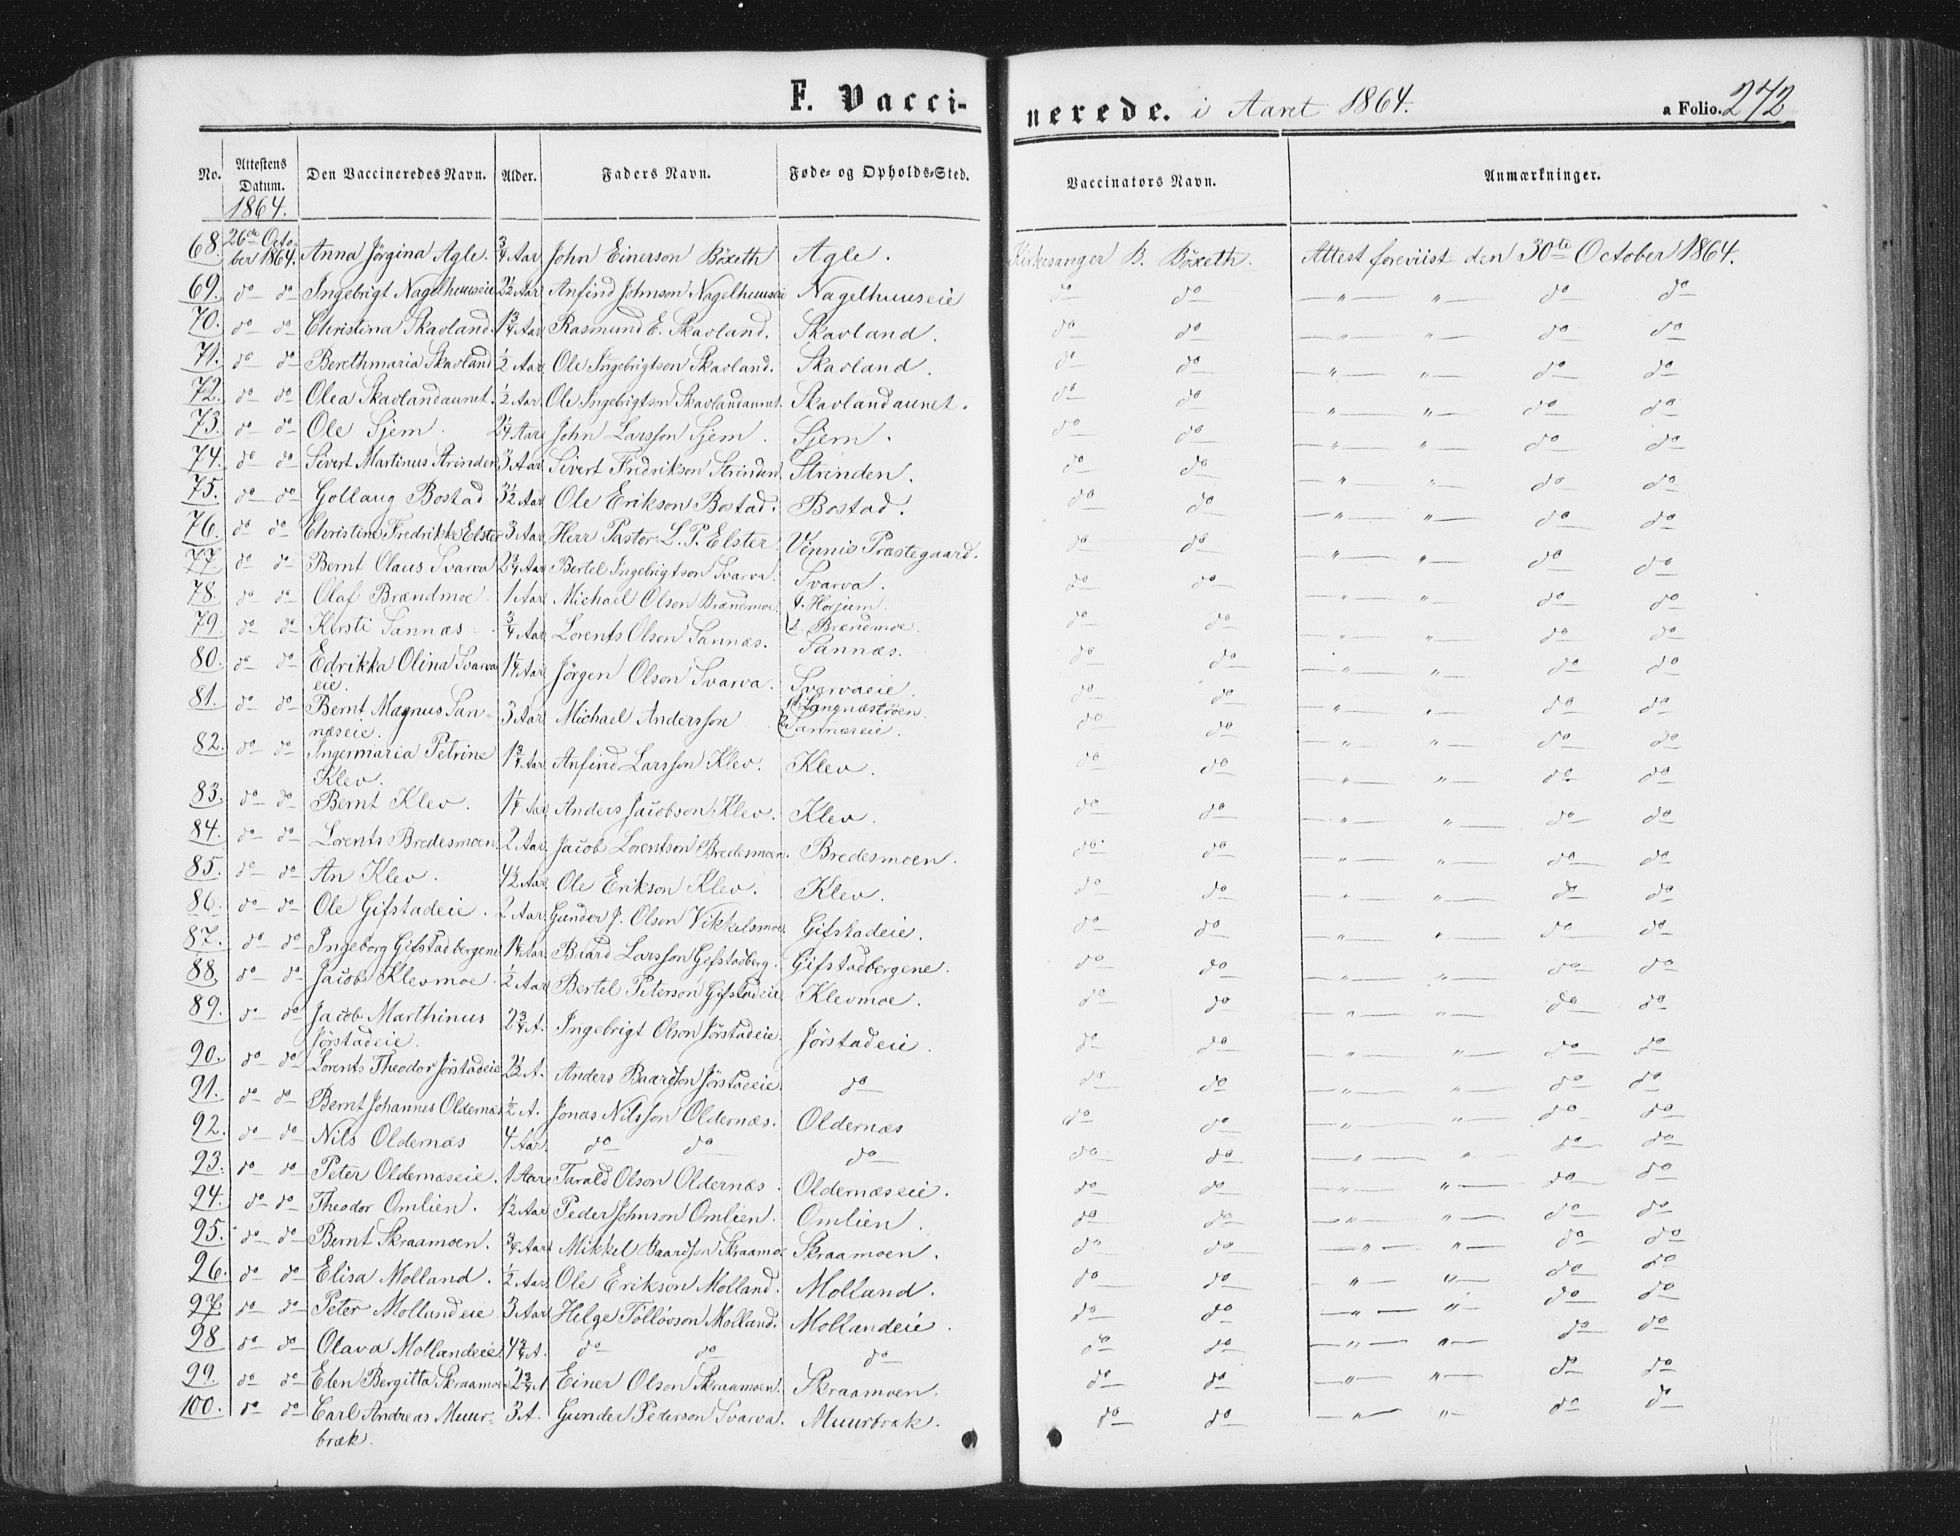 F. Vaccinerede. i Aaret 1864. a Folio. 272
No. Attestens Datum. Den Vaccineredes Navn. Alder. Faders Navn. Føde- og Opholds-Sted. Vaccinators Navn. Anmærkninger.
1864.
68. 26de October 1864. Anna Jörgina Agle. 3/4 Aar John Einerson Böxeth Agle. Kirkesanger B. Böxeth. Attest foreviist den 30te October 1864.
69. do do Ingebrigt Nagelhuuseie 2 1/2 Aar Anfind Johnson Nagelhuuseie Nagelhuuseie do do — " — " — do do
70. do do Christina Skavland. 1 3/4 Aar Rasmund E. Skavland. Skavland. do do — " — " — do do
71. do do Berethmaria Skavland 1/2 Aar Ole Ingebrigtson Skavland. Skavland. do do — " — " — do do
72. do do Olea Skavlandaunet. 1/2 Aar. Ole Ingebrigtson Skavlandaunet. Skavlandaunet. do do — " — " — do do
73. do do Ole Sjem. 2 1/4 Aar John Larsson Sjem. Sjem. do do — " — " — do do
74. do do Sivert Martinus Strinden 3 Aar Sivert Fredrikson Strinden. Strinden. do do — " — " — do do
75. do do Gollaug Bostad 3 1/2 Aar Ole Erikson Bostad. Bostad. do do — " — " — do do
76. do do Christine Fredrikke Elster 3 Aar. Herr Pastor L. P. Elster Vinnis Præstegaard. do do — " — " — do do
77. do do Bernt Olaus Svarva 2 3/4 Aar Bertel Ingebrigtson Svarva. Svarva. do do — " — " — do do
78. do do Olaf Brændmoe. 1 Aar Michael Olson Brændmoe 1. Horjum. 2. Brændmoe. do do — " — " — do do
79. do do Kersti Sannæs. 3/4 Aar Lorents Olson Sannæs. Sannæs. do do — " — " — do do
80. do do Edrikka Olina Svarvaeie. 1 1/4 Aar Jörgen Olson Svarva. Svarvaeie. do do — " — " — do do
81. do do Bernt Magnus Sannæseie. 3 Aar Michael Andersson Sannæseie. do do — " — " — do do
82. do do Ingermaria Petrine Klev. 1 3/4 Aar Anfind Larsson Klev. Klev. do do — " — " — do do
83. do do Bernt Klev. 1 1/4 Aar Anders Jacobson Klev. Klev. do do — " — " — do do
84. do do Lorents Bredesmoen 2 Aar. Jacob Lorentson Bredesmoen. Bredesmoen. do do — " — " — do do
85. do do An Klev. 4 1/2 Aar Ole Erikson Klev. Klev. do do — " — " — do do
86. do do Ole Gifstadeie. 2 Aar Gunder J. Olson Vikkelsmoe Gifstadeie. do do — " — " — do do
87. do do Ingeborg Gifstadbergene 1 1/4 Aar. Baard Larsson Gifstadberg. Gifstadbergene. do do — " — " — do do
88. do do Jacob Klevmoe. 1/2 Aar Bertel Peterson Gifstadeie Klevmoe. do do — " — " — do do
89. do do Jacob Marthinus Jörstadeie. 2 3/4 A. Ingebrigt Olson Jörstadeie. Jörstadeie. do do — " — " — do do
90. do do Lorents Theodor Jörstadeie 2 1/2 A. Anders Baardson Jörstadeie. do do do — " — " — do do
91. do do Bernt Johannes Oldernæs 1/2 A. Jonas Nilsson Oldernæs. Oldernæs do do — " — " — do do
92. do do Nils Oldernæs 4 Aar. do do do do do — " — " — do do
93. do do Peter Oldernæseie. 1 Aar Tarald Olson Oldernæs. Oldernæseie. do do — " — " — do do
94. do do Theodor Omlien. 1 1/2 Aar Peder Johnson Omlien. Omlien. do do — " — " — do do
95. do do Bernt Skraamoen. 3/4 Aar Mikkel Baardson Skraamoe Skraamoen. do do — " — " — do do
96. do do Elisa Molland. 1/2 Aar Ole Erikson Molland. Molland. do do — " — " — do do
97. do do Peter Mollandeie 3 Aar Helge Tollövson Molland. Mollandeie. do do — " — " — do do
98 do do Olava Mollandeie 4 3/4 A. do do do do do — " — " — do do
99. do do Elen Bergitta Skraamoe 2 3/4 A Einer Olson Skraamoen. Skraamoen. do do — " — " — do do
100. do do Carl Andreas Muurbræk. 3 A. Gunder Pederson Svarva. Muurbræk. do do — " — " — do do